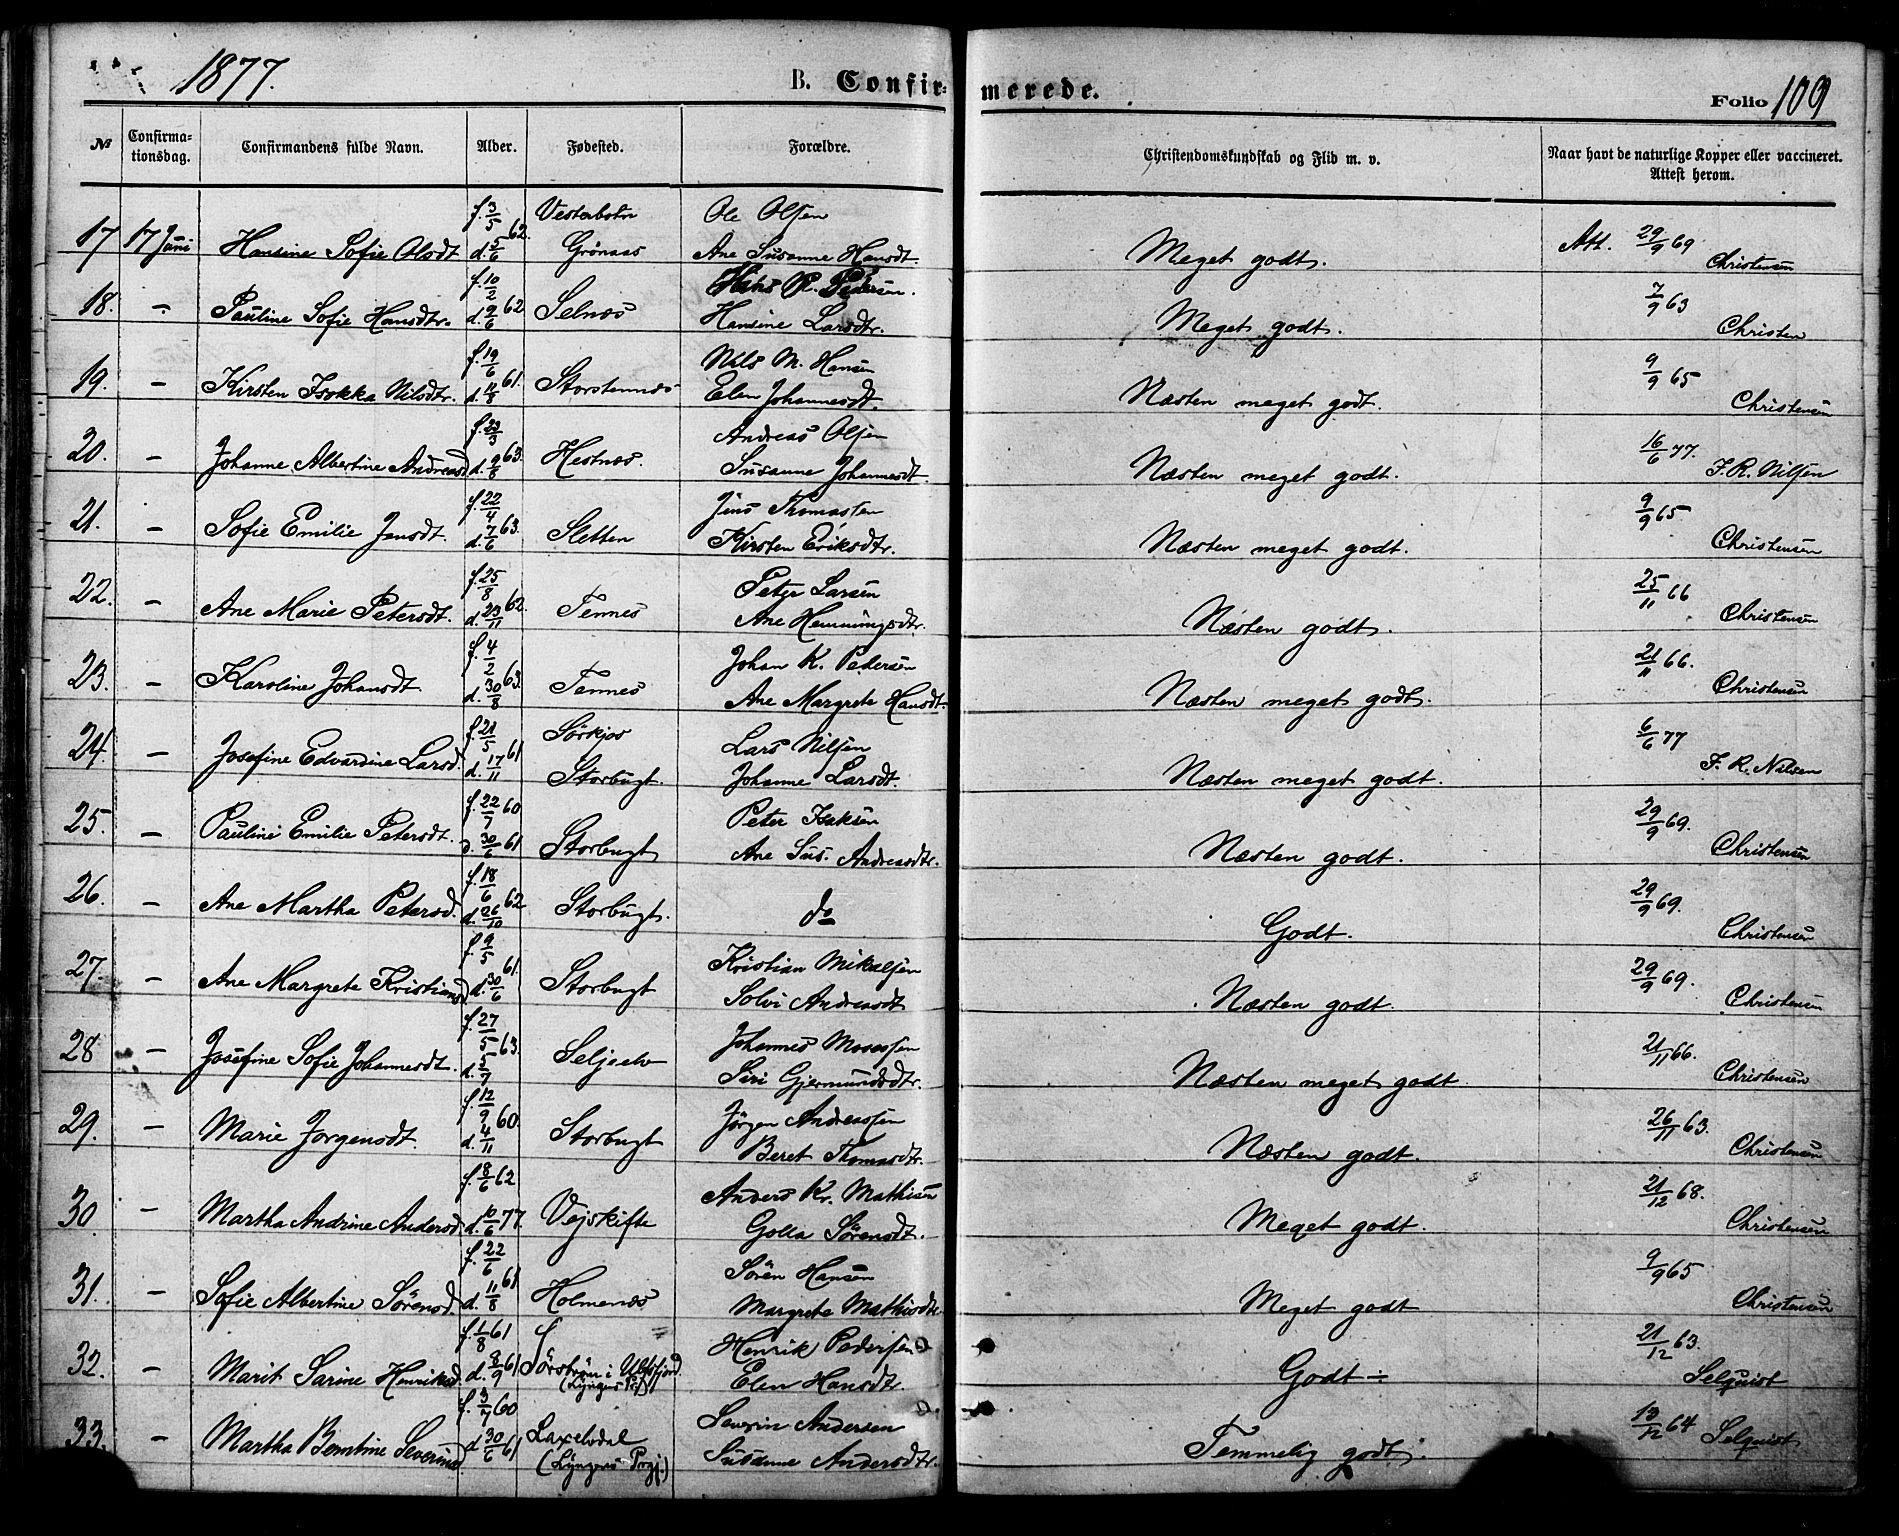 1877.
B. Confir-
merede.
Folio 109
№
Confirma-
tionsdag.
Confirmandens fulde Navn.
Alder.
Fødested.
Forældre.
Christendomskundskab og Flid m. v.
Naar havt de naturlige Kopper eller vaccineret.
Attest herom.
17 17 Juni Hansine Sofie Olsdt f. 3/5 d. 5/6 62. Vesterbotn Grönaas Ole Olsen Ane Susanne Hansdt. Meget godt. Att. 29/9 69 Christensen
18. - Pauline Sofie Hansdtr. f. 10/2 d. 9/6 62 Selnæs Hans R. Pedersen. Hansine Larsdtr. Meget godt. 7/9 63 Christen
19. - Kirsten Isokka Nilsdtr. f. 19/6 d. 11/8 61. Storstennæs Nils M. Hansen Elen Johannesdt. Næsten meget godt. 9/9 65 Christensen
20. - Johanne Albertine Andreasd f. 23/3 d. 9/8 63. Hestnæs. Andreas Olsen Susanne Johannesdt. Næsten meget godt. 16/6 77. F. R. Nilsen
21. - Sofie Emilie Jensdt. f. 22/4 d. 7/6 63. Sletten Jens Thomasten Kirsten Eriksdtr. Næsten meget godt. 9/9 65. Christensen
22. - Ane Marie Petersdt. f. 25/8 d. 23/11 62. Tennes Peter Larsen Ane Hemmingsdtr. Næsten godt. 25/11 66 Christensen
23. - Karoline Johansdt. f. 4/2 d. 30/8 63. Tennes Johan K. Pedersen Ane Margrete Hansdt. Næsten meget godt. 21/11 66. Christensen
24. - Josefine Edvardine Larsd. f. 21/5 d. 17/11 61 Sörkjos Storbugt. Lars Nilsen Johanne Larsdt. Næsten meget godt. 6/6 77 F. R. Nilsen
25. - Pauline Emilie Petersdt. f. 22/7 60 d. 30/6 61 Storbugt Peter Isaksen Ane Sus. Andreasdtr. Næsten godt. 29/9 69. Christensen
26. - Ane Martha Petersd. f. 18/6 d. 26/10 62 Storbugt. do Godt. 29/9 69. Christensen
27. - Ane Margrete Kristiansd f. 9/5 d. 30/6 61. Storbugt Kristian Mikalsen Solvi Andreasdt Næsten godt. 29/9 69. Christensen
28 - Josefine Sofie Johannesdt. f. 27/5 d. 5/7 63. Seljeelv Johannes Mosessen Siri Gjermundsdtr. Næsten meget godt 21/11 66. Christensen
29. - Marie Jorgensdt. f. 12/9 d. 4/11 60. Storbugt Jörgen Andreassen Beret Thomasdtr. Næsten godt. 26/11 63. Christensen
30 - Martha Andrine Andersd f. 8/6 62 d. 10/6 77. Vejskifte Anders Kr. Mathisen Golla Sörensdt. Meget godt. 21/12 68. Christensen
31. - Sofie Albertine Sörensd. f. 22/6 d. 11/8 61 Holmenæs Sören Hansen Margrete Mathisdtr. Meget godt 9/9 65 Christensen
32. - Marit Sarine Henriksd. f. 1/8 61 d. 8/9 61 Sörström i Ulfsfjord. (Lyngens Prgj.) Henrik Pedersen Elen Hansdtr. Godt ÷ 21/12 63. Selquist
33. - Martha Berntine Severinsd f. 3/7 60 d. 30/6 61 Laxelvdal (Lyngens Prgj.) Severin Andersen Susanne Andersdtr. Temmelig godt. 13/12 64 Selquist